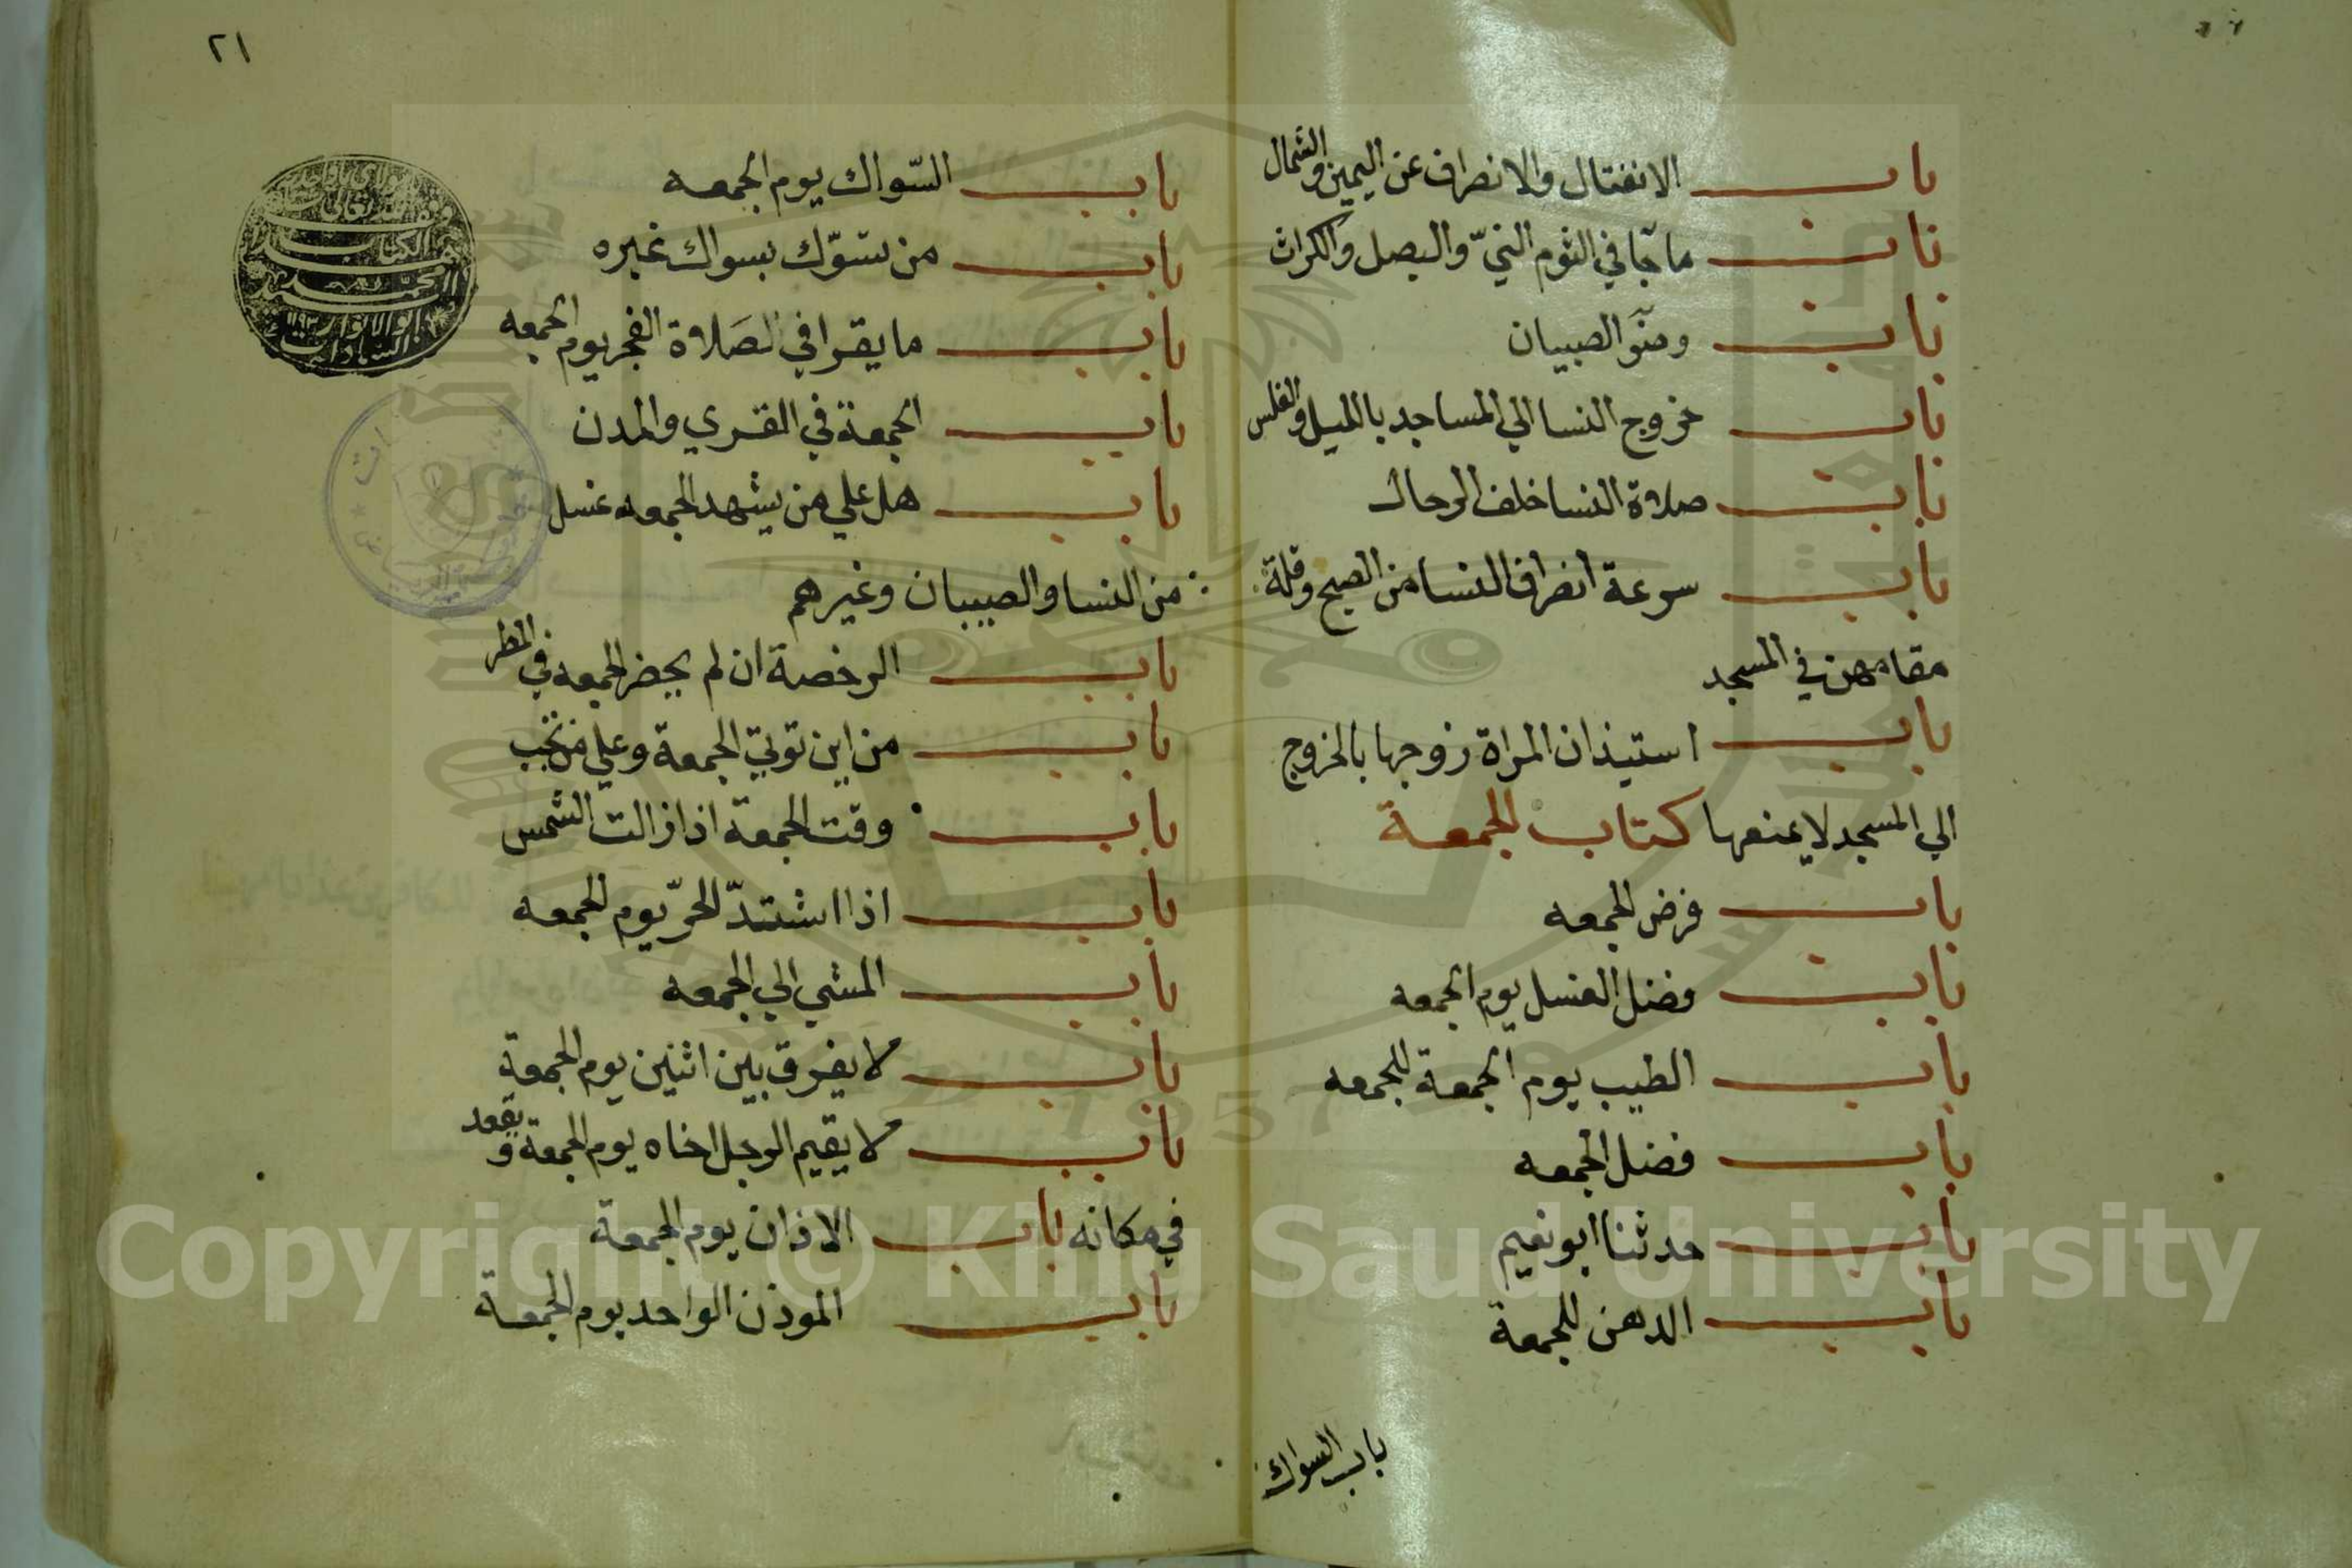 باب الانفتال والانصراف عن اليمين والشمال
باب ما جآ في الثوم النيّ والبصل والكراث
باب وضوٓ الصبيان
باب خروج النسا الي المساجد بالليل والغلس
باب صلاة النسا خلف الرجال
باب سرعة انصراف النسا من الصبح وقلة
مقامهن في المسجد
باب استيذان المراة زوجها بالخروج
الي المسجد لا يمنعها كتاب الجمعة
باب فرض الجمعه
باب فضل الغسل يوم الجمعه
باب الطيب يوم الجمعة للجمعه
باب فضل الجمعه
باب حدثنا ابو نعيم
باب الدهن للجمعة
باب السواك
٢١
باب السّواك يوم الجمعه
باب من تسوّك بسواك غيره
باب ما يقرا في الصَلاة الفجر يوم الجمعه
باب الجمعة في القري والمدن
باب هل علي من يشهد الجمعه غسل
من النسا والصبيان وغيرهم
باب الرخصة ان لم يحضر الجمعه في المطر
باب من اين توتي الجمعة وعلي من تجب
باب وقت الجمعة اذا زالت الشمس
باب اذا اشتدّ الحرّ يوم الجمعه
باب المشي الي الجمعه
باب لا يفرق بين اثنين يوم الجمعة
باب لا يقيم الرجل اخاه يوم الجمعة و يقعد
في مكانه باب الاذان يوم الجمعة
باب الموذن الواحد يوم الجمعة
Copyright © King Saud University
1957